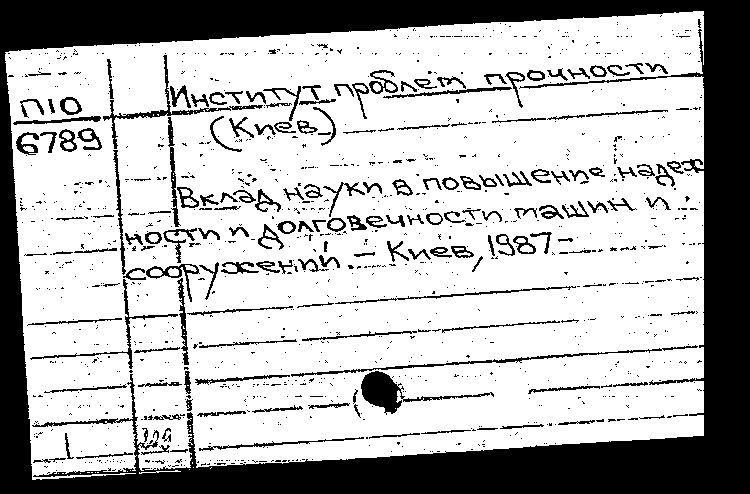 П10
6789
Институт проблем прочности
(Киев)
Вклад науки в повышение надеж
ности и долговечности машин и
сооружений. – Киев, 1987–
229